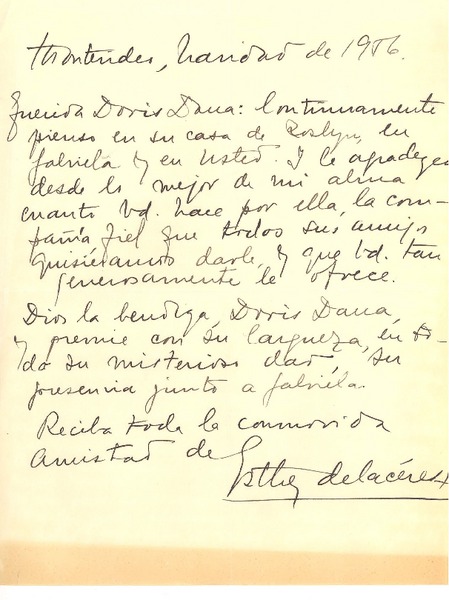 Montevideo, Navidad de 1956.
Querida Doris Dana: Continuamente
pienso en su casa de Roslyn, en
Gabriela y en Usted. Y le agradezco
desde lo mejor de mi alma
cuanto Vd. hace por ella, la com-
pañía fiel que todos sus amigos
quisiéramos darle, y que Vd. tan
generosamente le ofrece.
Dios la bendiga, Doris Dana,
y premie con su largueza, en to-
do su misterioso dar, su
presencia junto a Gabriela.
Reciba toda la conmovida
amistad de
Esther de Cáceres